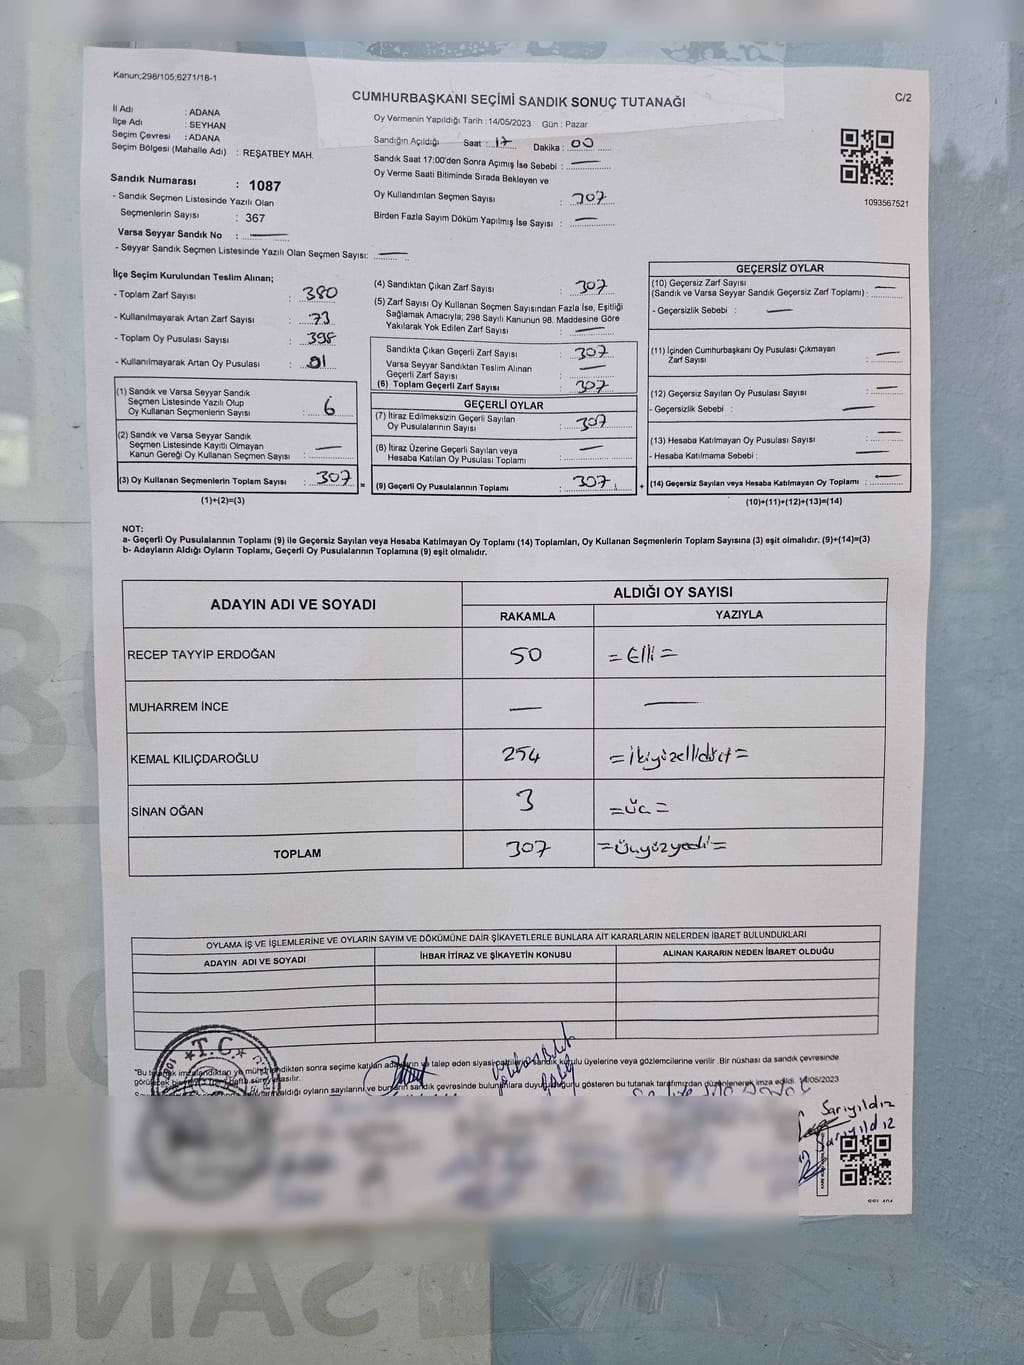 Kanun;298/105;6271/18-1
C/2
CUMHURBAŞKANI SEÇİMİ SANDIK SONUÇ TUTANAĞI
İl Adı : ADANA
İlçe Adı : SEYHAN
Seçim Çevresi : ADANA
Seçim Bölgesi (Mahalle Adı) : REŞATBEY MAH.
Sandık Numarası : 1087
- Sandık Seçmen Listesinde Yazılı Olan
Seçmenlerin Sayısı : 367
Varsa Seyyar Sandık No :
- Seyyar Sandık Seçmen Listesinde Yazılı Olan Seçmen Sayısı:
Oy Vermenin Yapıldığı Tarih : 14/05/2023 Gün : Pazar
Sandığın Açıldığı Saat : 17 Dakika : 00
Sandık Saat 17:00'den Sonra Açımış İse Sebebi :
Oy Verme Saati Bitiminde Sırada Bekleyen ve
Oy Kullandırılan Seçmen Sayısı : 307
Birden Fazla Sayım Döküm Yapılmış İse Sayısı :
1093567521
İlçe Seçim Kurulundan Teslim Alınan;
- Toplam Zarf Sayısı : 380
- Kullanılmayarak Artan Zarf Sayısı : 73
- Toplam Oy Pusulası Sayısı : 398
- Kullanılmayarak Artan Oy Pusulası : 91
(1) Sandık ve Varsa Seyyar Sandık
Seçmen Listesinde Yazılı Olup
Oy Kullanan Seçmenlerin Sayısı : 6
(2) Sandık ve Varsa Seyyar Sandık
Seçmen Listesinde Kayıtlı Olmayan
Kanun Gereği Oy Kullanan Seçmen Sayısı :
(3) Oy Kullanan Seçmenlerin Toplam Sayısı : 307
(1)+(2)=(3)
=
(4) Sandıktan Çıkan Zarf Sayısı : 307
(5) Zarf Sayısı Oy Kullanan Seçmen Sayısından Fazla İse, Eşitliği
Sağlamak Amacıyla; 298 Sayılı Kanunun 98. Maddesine Göre
Yakılarak Yok Edilen Zarf Sayısı :
Sandıkta Çıkan Geçerli Zarf Sayısı : 307
Varsa Seyyar Sandıktan Teslim Alınan
Geçerli Zarf Sayısı :
(6) Toplam Geçerli Zarf Sayısı : 307
GEÇERLİ OYLAR
(7) İtiraz Edilmeksizin Geçerli Sayılan
Oy Pusulalarının Sayısı : 307
(8) İtiraz Üzerine Geçerli Sayılan veya
Hesaba Katılan Oy Pusulası Toplamı :
(9) Geçerli Oy Pusulalarının Toplamı : 307
+
GEÇERSİZ OYLAR
(10) Geçersiz Zarf Sayısı
(Sandık ve Varsa Seyyar Sandık Geçersiz Zarf Toplamı) :
- Geçersizlik Sebebi :
(11) İçinden Cumhurbaşkanı Oy Pusulası Çıkmayan
Zarf Sayısı :
(12) Geçersiz Sayılan Oy Pusulası Sayısı :
- Geçersizlik Sebebi :
(13) Hesaba Katılmayan Oy Pusulası Sayısı :
- Hesaba Katılmama Sebebi :
(14) Geçersiz Sayılan veya Hesaba Katılmayan Oy Toplamı :
(10)+(11)+(12)+(13)=(14)
NOT:
a- Geçerli Oy Pusulalarının Toplamı (9) ile Geçersiz Sayılan veya Hesaba Katılmayan Oy Toplamı (14) Toplamları, Oy Kullanan Seçmenlerin Toplam Sayısına (3) eşit olmalıdır. (9)+(14)=(3)
b- Adayların Aldığı Oyların Toplamı, Geçerli Oy Pusulalarının Toplamına (9) eşit olmalıdır.
ADAYIN ADI VE SOYADI ALDIĞI OY SAYISI
RAKAMLA YAZIYLA
RECEP TAYYİP ERDOĞAN 50 = Elli =
MUHARREM İNCE
KEMAL KILIÇDAROĞLU 254 = İkiyüzellidört =
SİNAN OĞAN 3 = üç =
TOPLAM 307 = Üçyüzyedi =
OYLAMA İŞ VE İŞLEMLERİNE VE OYLARIN SAYIM VE DÖKÜMÜNE DAİR ŞİKAYETLERLE BUNLARA AİT KARARLARIN NELERDEN İBARET BULUNDUKLARI
ADAYIN ADI VE SOYADI İHBAR İTİRAZ VE ŞİKAYETİN KONUSU ALINAN KARARIN NEDEN İBARET OLDUĞU
T.C.
sandık kurulu üyelerine veya gözlemcilerine verilir .Bir nüshası da sandık çevresinde
aldığı oyların sayılarını ve bunların sandık çevresinde bulunanlara duyurulduğunu gösteren bu tutanak tarafımızdan düzenlenerek imza edildi. 14/05/2023
Sarıyıldız
Sarıyıldız